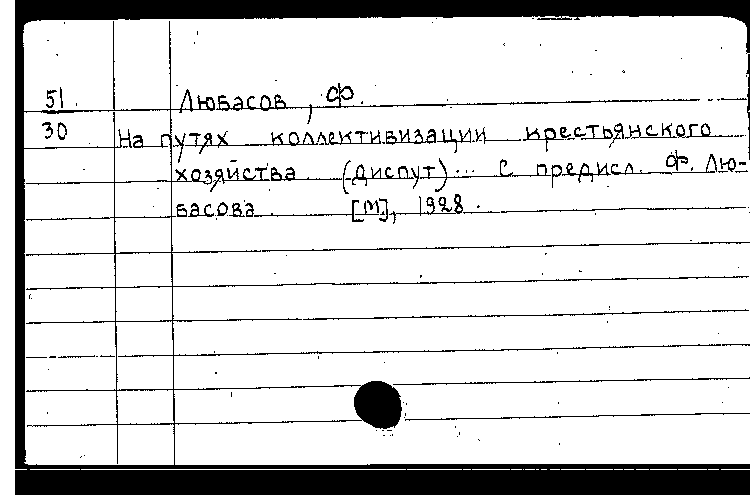 51 Любасов, Ф.
30 На путях коллективизации крестьянского
хозяйства (диспут)... С предисл. Ф. Лю-
басова. [М], 1928.